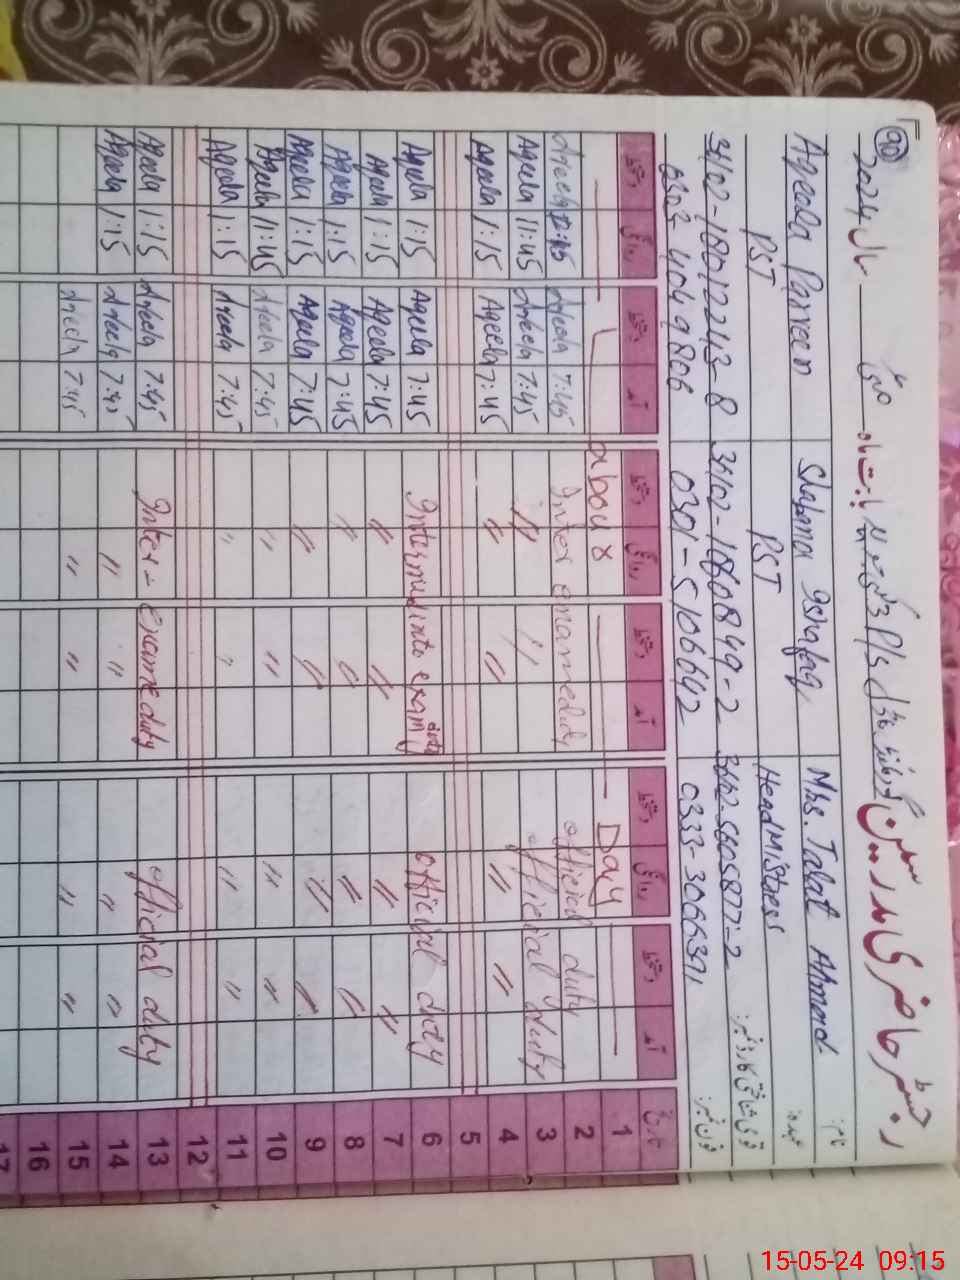 90
رجسٹر حاضری مدرسین گورنمنٹ بابت ماہ مئی سال 2024
Aqeela Parveen Shabana Ishafaq Mrs. Talat Ahmed نام:
PST PST HeadMistress عہدہ:
قومی شناختی کارڈ نمبر:
0301-5106642 0333-3066371 فون نمبر:
دستخط روانگی دستخط آمد دستخط روانگی دستخط آمد دستخط روانگی دستخط آمد تاریخ
Labour Day 1
Aqeela Aqeela 7:45 Inter exam duty official duty 2
Aqeela 11:45 Aqeela 7:45 " " official duty 3
Aqeela 1:15 Aqeela 7:45 " " " " 4
5
Aqeela 1:15 Aqeela 7:45 Intermediate exam duty official duty 6
Aqeela 1:15 Aqeela 7:45 " " " " 7
Aqeela 1:15 Aqeela 7:45 " " " " 8
Aqeela 1:15 Aqeela 7:45 " " " " 9
Aqeela 11:45 Aqeela 7:45 " " " " 10
Aqeela 1:15 Aqeela 7:45 " " " " 11
12
Aqeela 1:15 Aqeela 7:45 Inter-exame duty official duty 13
Aqeela 1:15 Aqeela 7:45 " " " " 14
Aqeela 7:45 " " " " 15
16
17
15-05-24 09:15